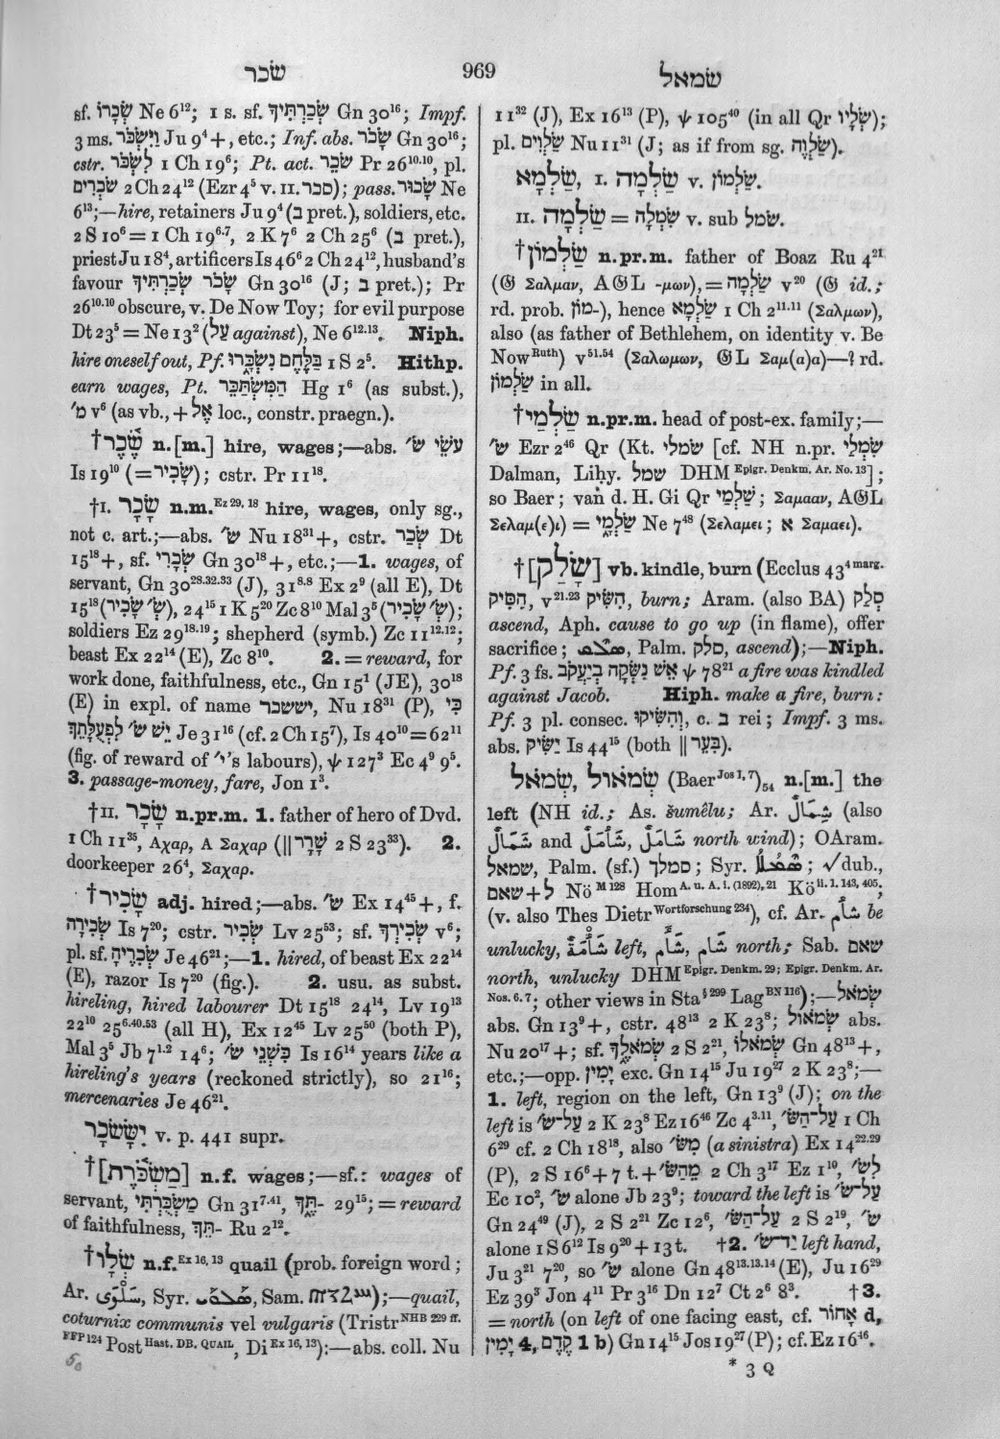 שׂכר 969 שׂמאל
sf. שְׂכָרוֹ Ne 6¹²; 1 s. sf. שְׂכַרְתִּיךָ Gn 30¹⁶; Impf.
3 ms. וַיִּשְׂכֹּר Ju 9⁴+, etc.; Inf. abs. שָׂכֹר Gn 30¹⁶;
cstr. לִשְׂכֹּר 1 Ch 19⁶; Pt. act. שֹׂכֵר Pr 26¹⁰·¹⁰, pl.
שֹׂכְרִים 2 Ch 24¹² (Ezr 4⁵ v. II. סכר); pass. שָׂכוּר Ne
6¹³;—hire, retainers Ju 9⁴ (ב pret.), soldiers, etc.
2 S 10⁶ = 1 Ch 19⁶·⁷, 2 K 7⁶ 2 Ch 25⁶ (ב pret.),
priest Ju 18⁴, artificers Is 46⁶ 2 Ch 24¹², husband's
favour שָׂכֹר שְׂכַרְתִּיךָ Gn 30¹⁶ (J; ב pret.); Pr
26¹⁰·¹⁰ obscure, v. De Now Toy; for evil purpose
Dt 23⁵ = Ne 13² (עַל against), Ne 6¹²·¹³. Niph.
hire oneself out, Pf. בַּלֶּחֶם נִשְׂכָּרוּ 1 S 2⁵. Hithp.
earn wages, Pt. הַמִּשְׂתַּכֵּר Hg 1⁶ (as subst.),
מ׳ v⁶ (as vb., + אֶל loc., constr. praegn.).
†שֶׂכֶר n.[m.] hire, wages;—abs. עֹשֵׂי שׂ׳
Is 19¹⁰ (= שָׂכִיר); cstr. Pr 11¹⁸.
†I. שָׂכָר n.m. Ez 29, 18 hire, wages, only sg.,
not c. art.;—abs. שׂ׳ Nu 18³¹+, cstr. שְׂכַר Dt
15¹⁸+, sf. שְׂכָרִי Gn 30¹⁸+, etc.;—1. wages, of
servant, Gn 30²⁸·³²·³³ (J), 31⁸·⁸ Ex 2⁹ (all E), Dt
15¹⁸ (שׂ׳ שָׂכִיר), 24¹⁵ 1 K 5²⁰ Zc 8¹⁰ Mal 3⁵ (שׂ׳ שָׂכִיר);
soldiers Ez 29¹⁸·¹⁹; shepherd (symb.) Zc 11¹²·¹²;
beast Ex 22¹⁴ (E), Zc 8¹⁰. 2. = reward, for
work done, faithfulness, etc., Gn 15¹ (JE), 30¹⁸
(E) in expl. of name יששכר, Nu 18³¹ (P), כִּי
יֵשׁ שׂ׳ לִפְעֻלָּתֵךְ Je 31¹⁶ (cf. 2 Ch 15⁷), Is 40¹⁰ = 62¹¹
(fig. of reward of י׳'s labours), ψ 127³ Ec 4⁹ 9⁵.
3. passage-money, fare, Jon 1³.
†II. שָׂכָר n.pr.m. 1. father of hero of Dvd.
1 Ch 11³⁵, Αχαρ, A Σαχαρ (‖ שָׁרָר 2 S 23³³). 2.
doorkeeper 26⁴, Σαχαρ.
†שָׂכִיר adj. hired;—abs. שׂ׳ Ex 14⁴⁵+, f.
שְׂכִירָה Is 7²⁰; cstr. שְׂכִיר Lv 25⁵³; sf. שְׂכִירְךָ v⁶;
pl. sf. שְׂכִרֶיהָ Je 46²¹;—1. hired, of beast Ex 22¹⁴
(E), razor Is 7²⁰ (fig.). 2. usu. as subst.
hireling, hired labourer Dt 15¹⁸ 24¹⁴, Lv 19¹³
22¹⁰ 25⁶·⁴⁰·⁵³ (all H), Ex 12⁴⁵ Lv 25⁵⁰ (both P),
Mal 3⁵ Jb 7¹·² 14⁶; כִּשְׁנֵי שׂ׳ Is 16¹⁴ years like a
hireling's years (reckoned strictly), so 21¹⁶;
mercenaries Je 46²¹.
יִשָּׂשׂכָר v. p. 441 supr.
†[מַשְׂכֹּרֶת] n.f. wages;—sf.: wages of
servant, מַשְׂכֻּרְתִּי Gn 31⁷·⁴¹, ־תֶּךָ 29¹⁵; = reward
of faithfulness, ־תֵּךְ Ru 2¹².
†שְׂלָו n.f. Ex 16, 13 quail (prob. foreign word;
Ar. سَلْوَى, Syr. ܣܠܘܝ, Sam. );—quail,
coturnix communis vel vulgaris (Tristr NHB 229 ff.
FFP 124 Post Hast. DB. QUAIL, Di Ex 16, 13):—abs. coll. Nu
11³² (J), Ex 16¹³ (P), ψ 105⁴⁰ (in all Qr שְׂלָיו);
pl. שַׂלְוִים Nu 11³¹ (J; as if from sg. שַׂלְוָה).
שַׂלְמָא, I. שַׂלְמָה v. שַׂלְמוֹן.
II. שַׂלְמָה = שִׂמְלָה v. sub שׂמל.
†שַׂלְמוֹן n.pr.m. father of Boaz Ru 4²¹
(𝔊 Σαλμαν, A𝔊L -μων), = שַׂלְמָה v²⁰ (𝔊 id.;
rd. prob. מוֹן-), hence שַׂלְמָא 1 Ch 2¹¹·¹¹ (Σαλμων),
also (as father of Bethlehem, on identity v. Be
Now Ruth) v⁵¹·⁵⁴ (Σαλωμων, 𝔊L Σαμ(α)α)—? rd.
שַׂלְמוֹן in all.
†שַׂלְמַי n.pr.m. head of post-ex. family;—
שׂ׳ Ezr 2⁴⁶ Qr (Kt. שׂמלי [cf. NH n.pr. שַׂמְלַי
Dalman, Liḥy. שמל DHM Epigr. Denkm. Ar. No. 13];
so Baer; van d. H. Gi Qr שַׁלְמַי; Σαμααν, A𝔊L
Σελαμ(ε)ι) = שַׂלְמָי Ne 7⁴⁸ (Σελαμει; א Σαμαει).
†[שָׂלַק] vb. kindle, burn (Ecclus 43⁴ marg.
הסיק, v²¹·²³ השיק, burn; Aram. (also BA) סְלֵק
ascend, Aph. cause to go up (in flame), offer
sacrifice; ܣܠܩ, Palm. סלק, ascend);—Niph.
Pf. 3 fs. אֵשׁ נִשְּׂקָה בְיַעֲקֹב ψ 78²¹ a fire was kindled
against Jacob. Hiph. make a fire, burn:
Pf. 3 pl. consec. וְהִשִּׂיקוּ, c. ב rei; Impf. 3 ms.
abs. יַשִּׂיק Is 44¹⁵ (both ‖ בִּעֵר).
שְׂמֹאול, שְׂמֹאל (Baer Jos 1, 7)₅₄ n.[m.] the
left (NH id.; As. šumêlu; Ar. شِمَال (also
شَمَال and شَأْمَل, شَامَل north wind); OAram.
שמאל, Palm. (sf.) סמלך; Syr. ܣܡܠܐ; √dub.,
שאם + ל Nö M 128 Hom A. u. A. i. (1892), 21 Kö ii. 1. 143, 405;
(v. also Thes Dietr Wortforschung 234), cf. Ar. شأم be
unlucky, شَأْمَة left, شَأْم, شَام north; Sab. שאם
north, unlucky DHM Epigr. Denkm. 29; Epigr. Denkm. Ar.
Nos. 6. 7; other views in Sta § 299 Lag BN 116);—שְׂמֹאל
abs. Gn 13⁹+, cstr. 48¹³ 2 K 23⁸; שְׂמֹאול abs.
Nu 20¹⁷+; sf. שְׂמֹאלֶךָ 2 S 2²¹, שְׂמֹאלוֹ Gn 48¹³+,
etc.;—opp. יָמִין exc. Gn 14¹⁵ Ju 19²⁷ 2 K 23⁸;—
1. left, region on the left, Gn 13⁹ (J); on the
left is עַל־שׂ׳ 2 K 23⁸ Ez 16⁴⁶ Zc 4³·¹¹, עַל־הַשּׂ׳ 1 Ch
6²⁹ cf. 2 Ch 18¹⁸, also מִשּׂ׳ (a sinistra) Ex 14²²·²⁹
(P), 2 S 16⁶ + 7 t. + מֵהַשּׂ׳ 2 Ch 3¹⁷ Ez 1¹⁰, לִשׂ׳
Ec 10², שׂ׳ alone Jb 23⁹; toward the left is עַל־שׂ׳
Gn 24⁴⁹ (J), 2 S 2²¹ Zc 12⁶, עַל־הַשּׂ׳ 2 S 2¹⁹, שׂ׳
alone 1 S 6¹² Is 9²⁰ + 13 t. †2. יַד־שׂ׳ left hand,
Ju 3²¹ 7²⁰, so שׂ׳ alone Gn 48¹³·¹³·¹⁴ (E), Ju 16²⁹
Ez 39³ Jon 4¹¹ Pr 3¹⁶ Dn 12⁷ Ct 2⁶ 8³. †3.
= north (on left of one facing east, cf. אָחוֹר d,
קֶדֶם 1 b) יָמִין 4, Gn 14¹⁵ Jos 19²⁷ (P); cf. Ez 16⁴⁶.
* 3 Q